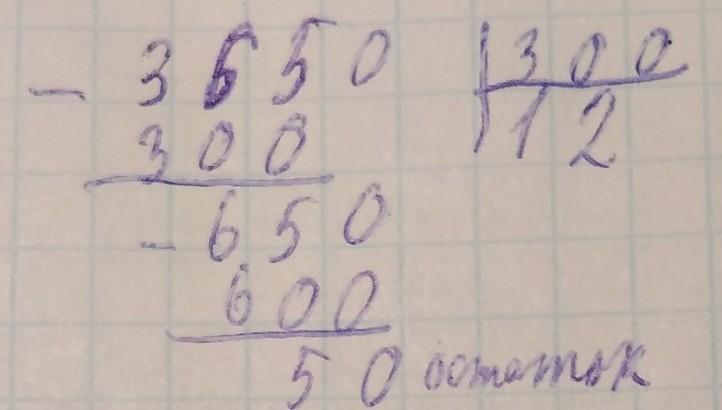 - 3650 300
300 12
- 650
600
50 остаток